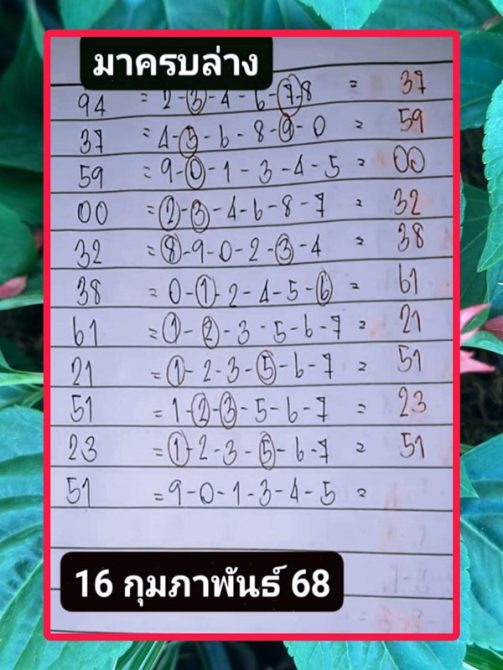 มาครบล่าง
94 = 2-3-4-6-7-8 = 37
37 = 4-5-6-8-9-0 = 59
59 = 9-0-1-3-4-5 = 00
00 = 2-3-4-6-8-7 = 32
32 = 8-9-0-2-3-4 = 38
38 = 0-1-2-4-5-6 = 61
61 = 1-2-3-5-6-7 = 21
21 = 1-2-3-5-6-7 = 51
51 = 1-2-3-5-6-7 = 23
23 = 1-2-3-5-6-7 = 51
51 = 9-0-1-3-4-5 =
16 กุมภาพันธ์ 68